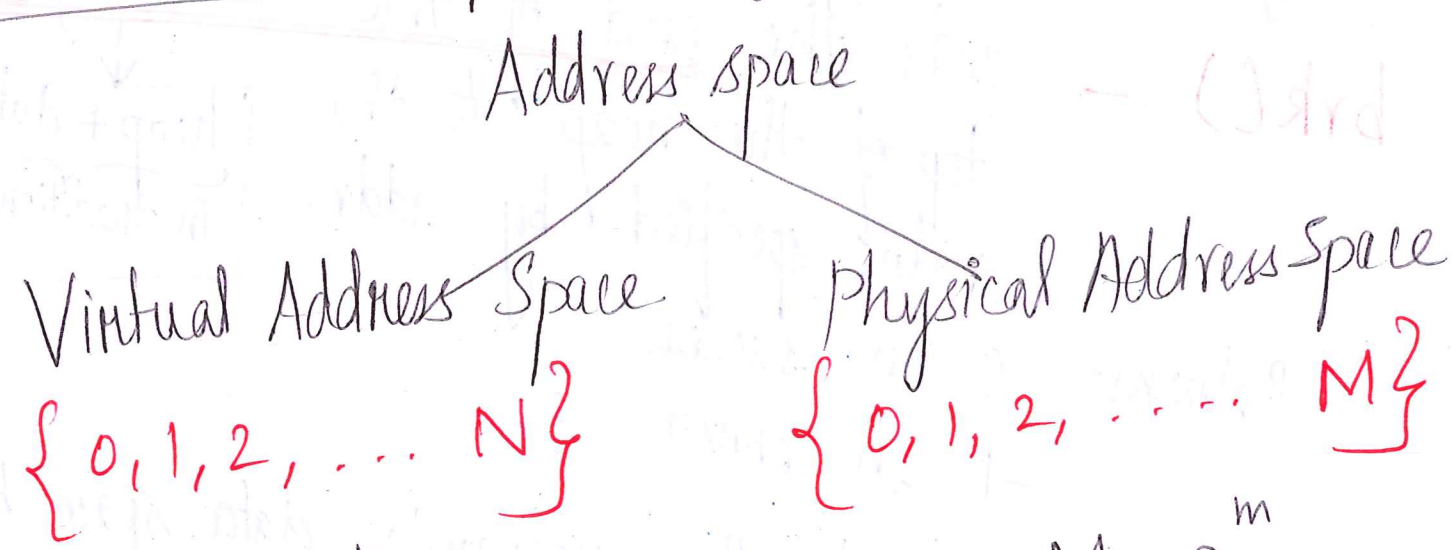 Address space
Virtual Address Space
Physical Address Space
{ 0, 1, 2, ... N }
{ 0, 1, 2, ..... M }
m